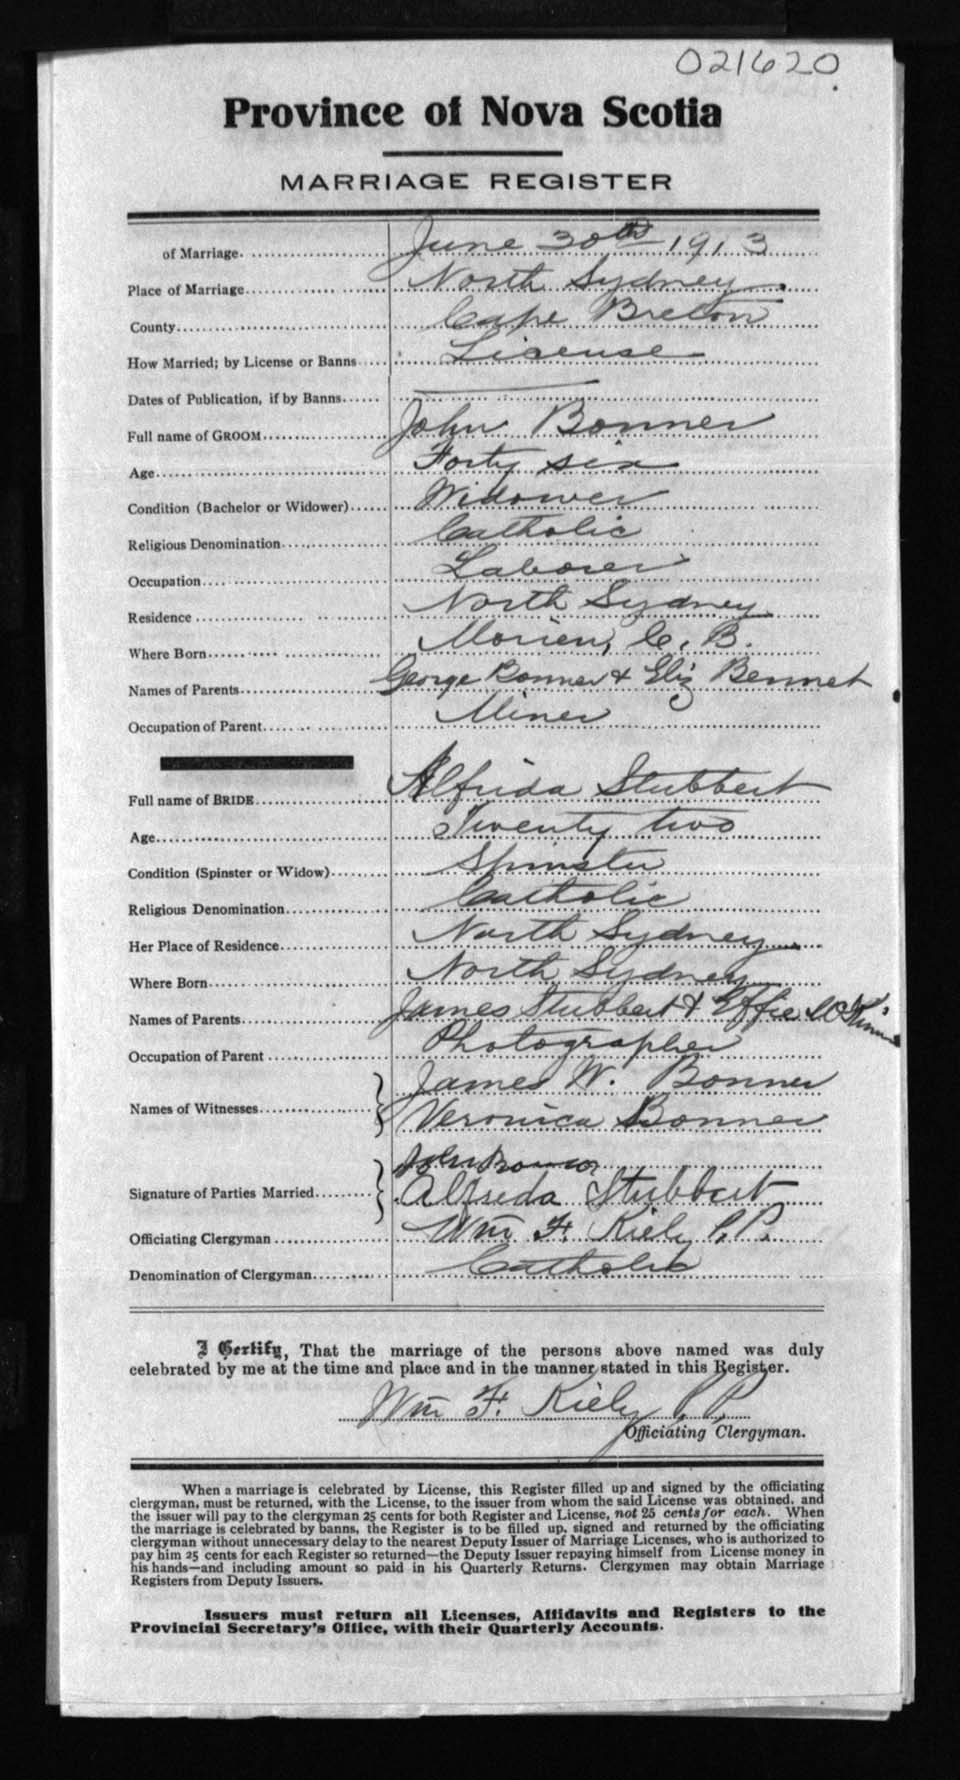 021620
Province of Nova Scotia
MARRIAGE REGISTER
of Marriage. June 30th 1913
Place of Marriage North Sydney.
County Cape Breton
How Married; by License or Banns License
Dates of Publication, if by Banns
Full name of GROOM John Bonner
Age Forty six
Condition (Bachelor or Widower) Widower
Religious Denomination Catholic
Occupation Laborer
Residence North Sydney
Where Born Morien, C. B.
Names of Parents George Bonner & Eliz Bennet
Occupation of Parent Miner
Full name of BRIDE Alfrida Stubbert
Age Twenty two
Condition (Spinster or Widow) Spinster
Religious Denomination Catholic
Her Place of Residence North Sydney
Where Born North Sydney
Names of Parents James Stubbert & Effie
Occupation of Parent Photographer
James W. Bonner
Names of Witnesses Veronica Bonner
John Bonner
Signature of Parties Married Alfreda Stubbert
Officiating Clergyman Wm F. Kiely P.P.
Denomination of Clergyman Catholic
I Certify, That the marriage of the persons above named was duly
celebrated by me at the time and place and in the manner stated in this Register.
Wm F. Kiely P.P.
Officiating Clergyman.
When a marriage is celebrated by License, this Register filled up and signed by the officiating
clergyman, must be returned, with the License, to the issuer from whom the said License was obtained, and
the issuer will pay to the clergyman 25 cents for both Register and License, not 25 cents for each. When
the marriage is celebrated by banns, the Register is to be filled up, signed and returned by the officiating
clergyman without unnecessary delay to the nearest Deputy Issuer of Marriage Licenses, who is authorized to
pay him 25 cents for each Register so returned—the Deputy Issuer repaying himself from License money in
his hands—and including amount so paid in his Quarterly Returns. Clergymen may obtain Marriage
Registers from Deputy Issuers.
Issuers must return all Licenses, Affidavits and Registers to the
Provincial Secretary's Office, with their Quarterly Accounts.